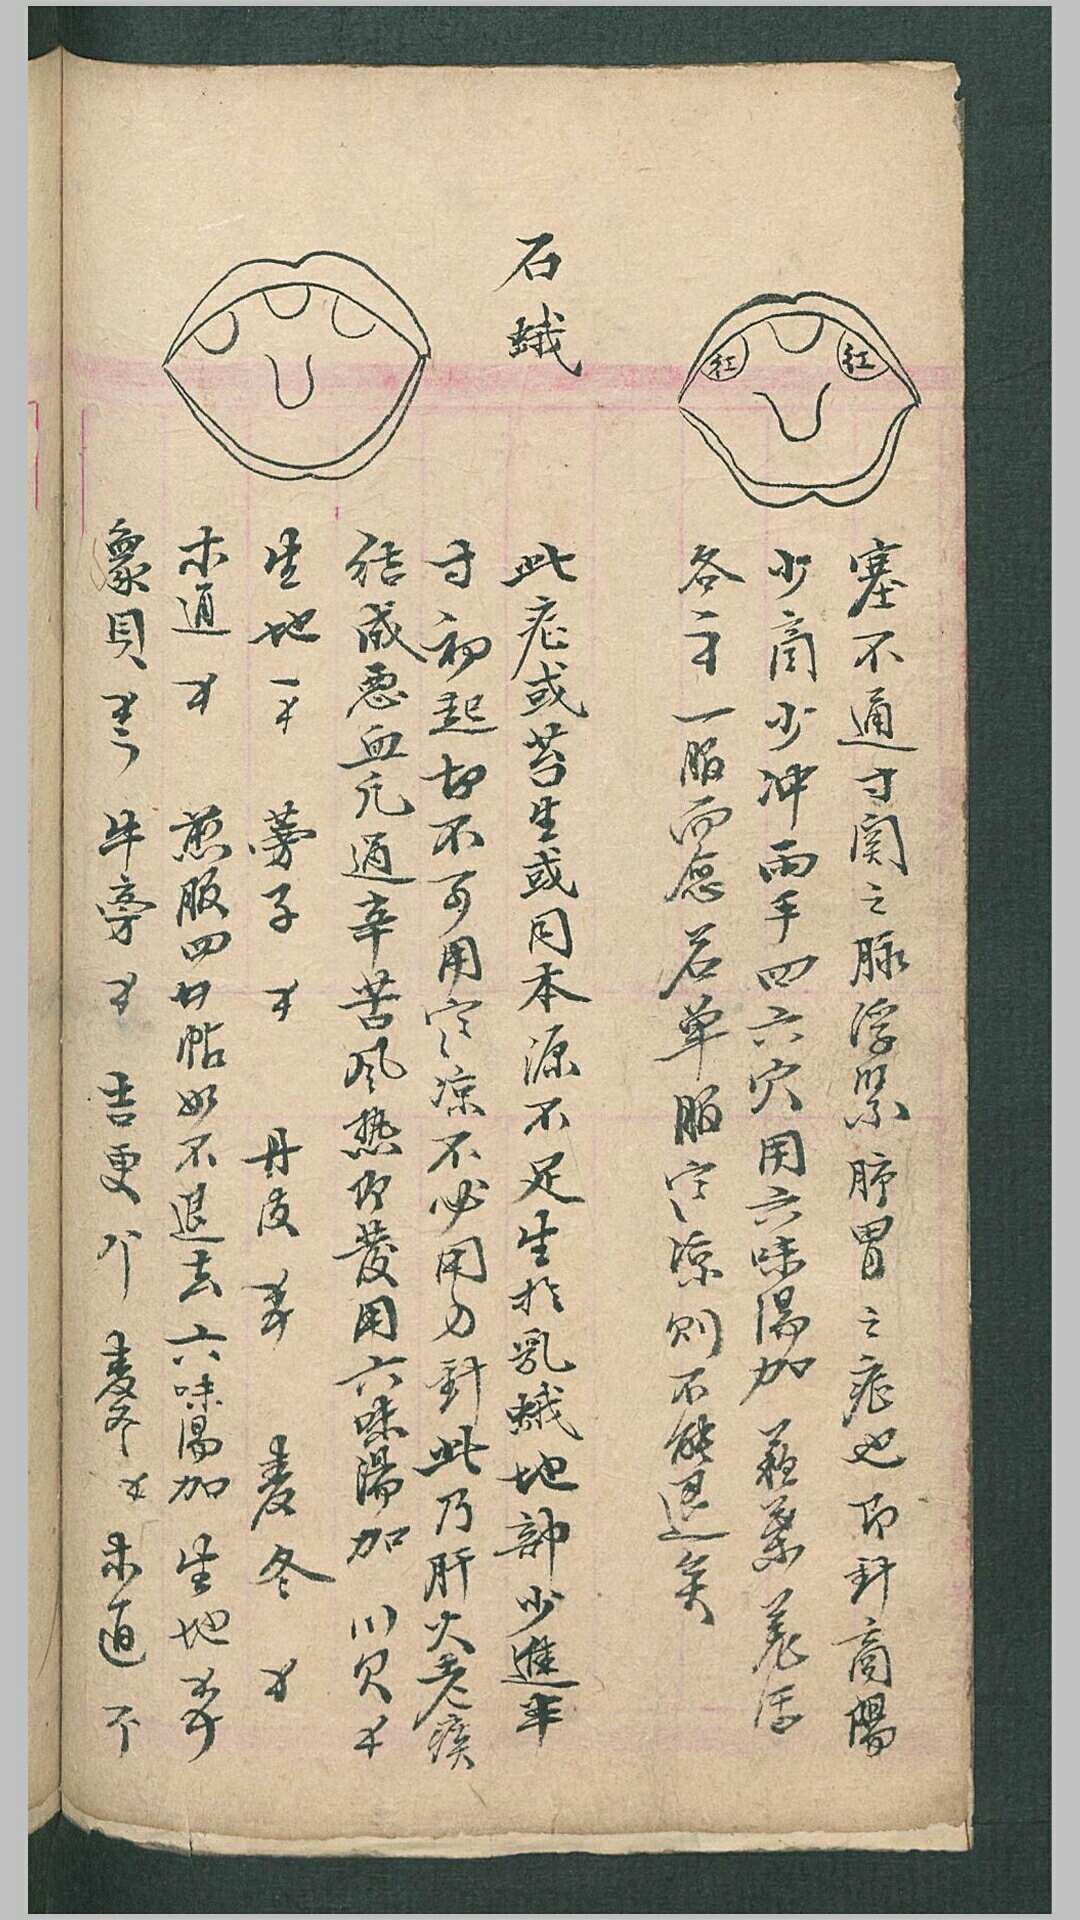 紅
紅
塞不通寸関之脉浮緊肺胃之症也即針商陽
少商少冲両手四六穴用六味湯加蘇葉羌活
各一服而愈若单服寒凉則不能退矣
石蛾
此症或苔生或同本源不足生於乳蛾地部少進半
寸初起切不可用寒凉不必用刀針此乃肝火老痰
结成惡血凡遇辛苦風热即發用六味湯加川貝
生地 蒡子 丹皮 麦冬
木通 煎服四廿帖如不退去六味湯加生地
象貝 牛旁 吉更 麦冬 木通